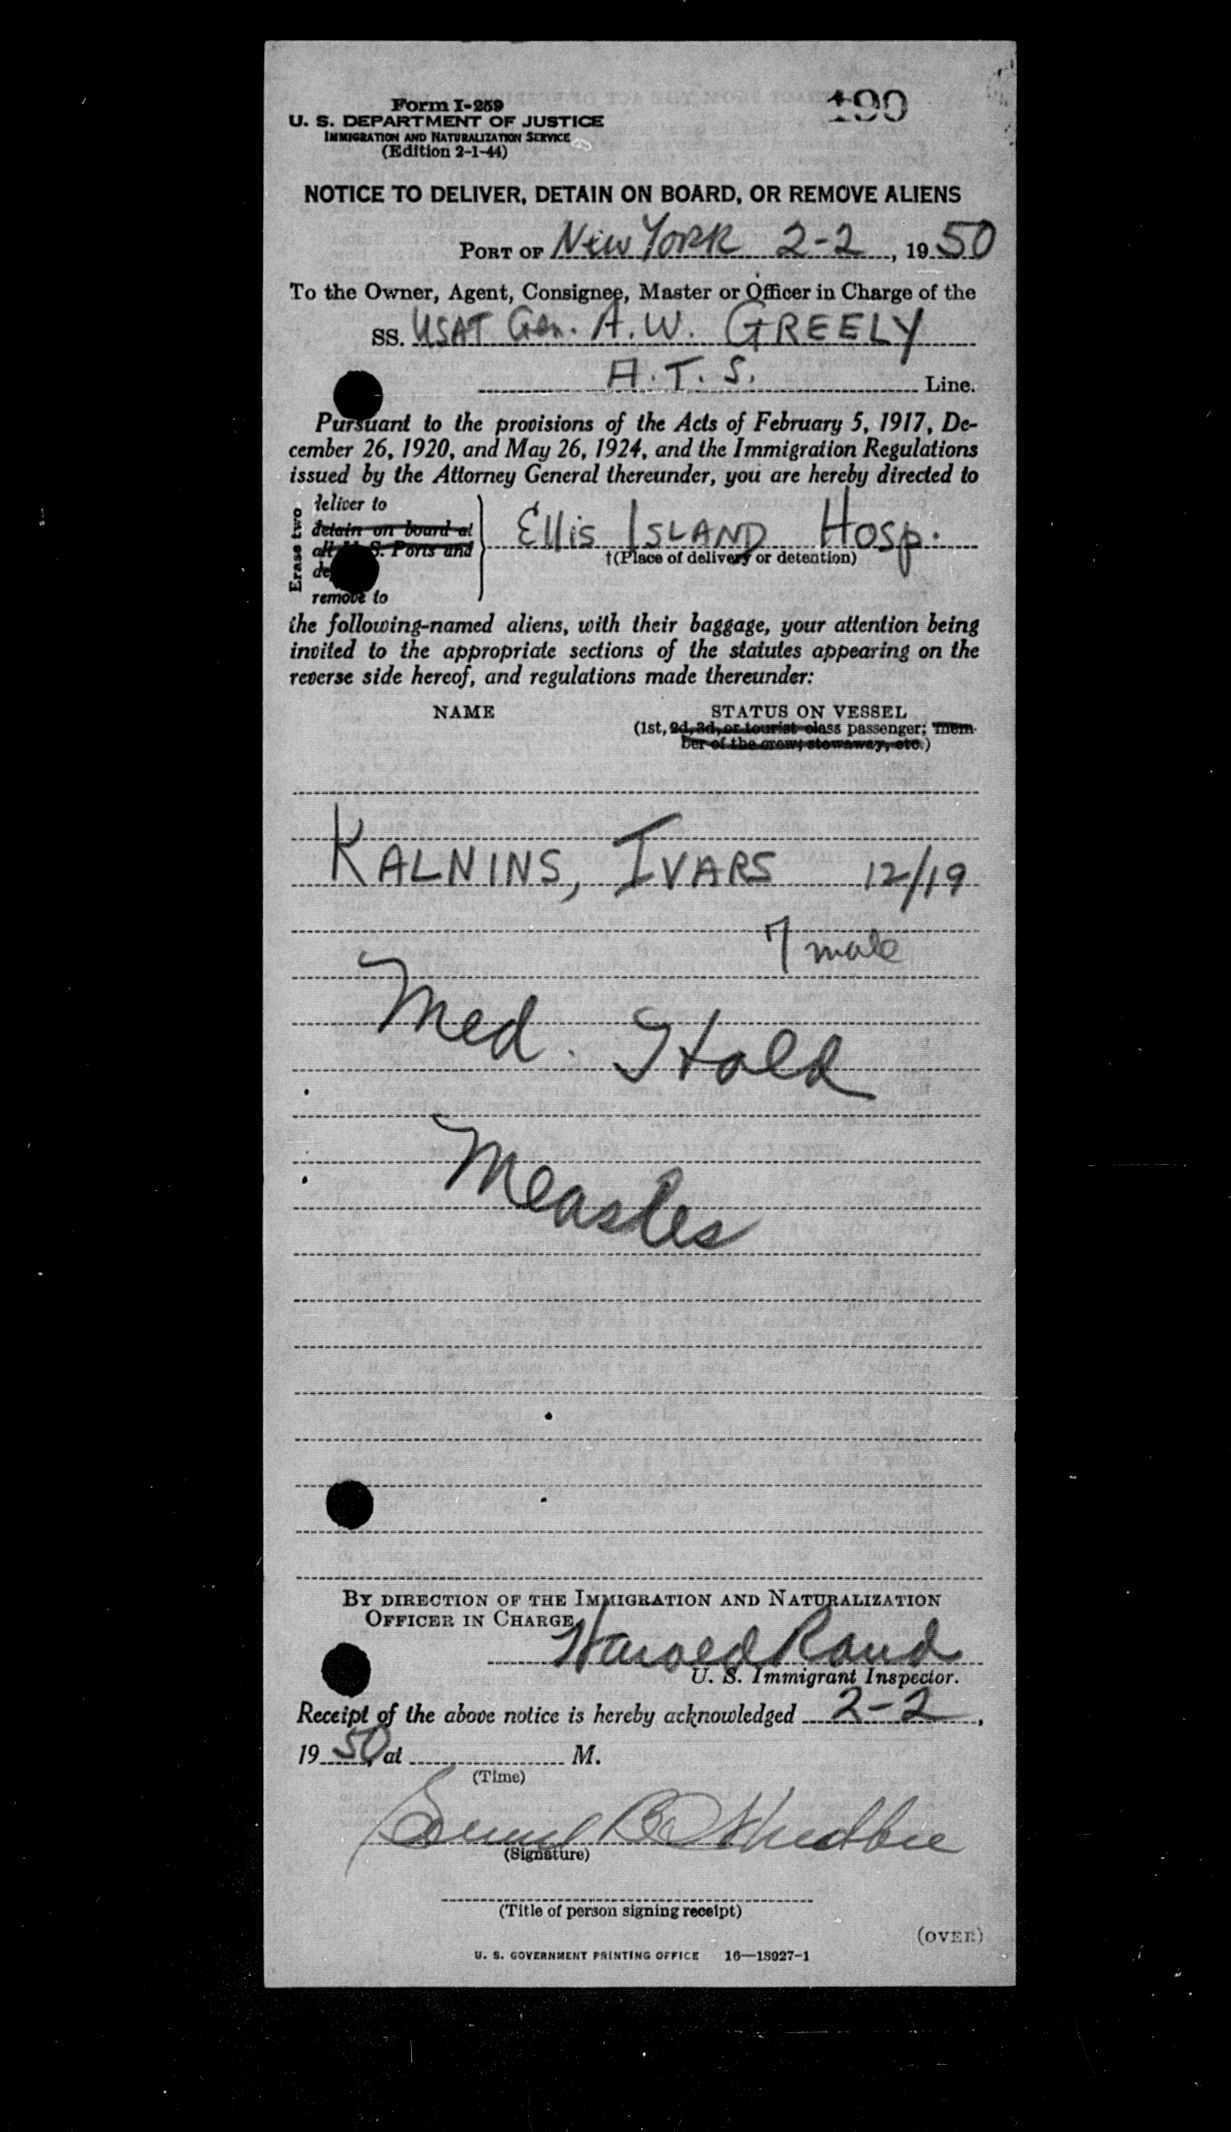 Form I-259
U. S. DEPARTMENT OF JUSTICE
IMMIGRATION AND NATURALIZATION SERVICE
(Edition 2-1-44)
190
NOTICE TO DELIVER, DETAIN ON BOARD, OR REMOVE ALIENS
PORT OF New York 2-2, 19 50
To the Owner, Agent, Consignee, Master or Officer in Charge of the
SS. USAT Gen. A.W. GREELY
A.T.S. Line.
Pursuant to the provisions of the Acts of February 5, 1917, De-
cember 26, 1920, and May 26, 1924, and the Immigration Regulations
issued by the Attorney General thereunder, you are hereby directed to
Erase two
deliver to
detain on board at
all U. S. Ports and
remove to
Ellis Island Hosp.
†(Place of delivery or detention)
the following-named aliens, with their baggage, your attention being
invited to the appropriate sections of the statutes appearing on the
reverse side hereof, and regulations made thereunder:
NAME STATUS ON VESSEL
(1st, 2d, 3d, or tourist class passenger; mem-
ber of the crew; stowaway, etc.)
KALNINS, IVARS 12/19
7 male
Med. Hold
Measles
BY DIRECTION OF THE IMMIGRATION AND NATURALIZATION
OFFICER IN CHARGE
Harold Rand
U. S. Immigrant Inspector.
Receipt of the above notice is hereby acknowledged 2-2,
19 50, at M.
(Time)
(Signature)
(Title of person signing receipt)
(OVER)
U. S. GOVERNMENT PRINTING OFFICE 16—18927-1